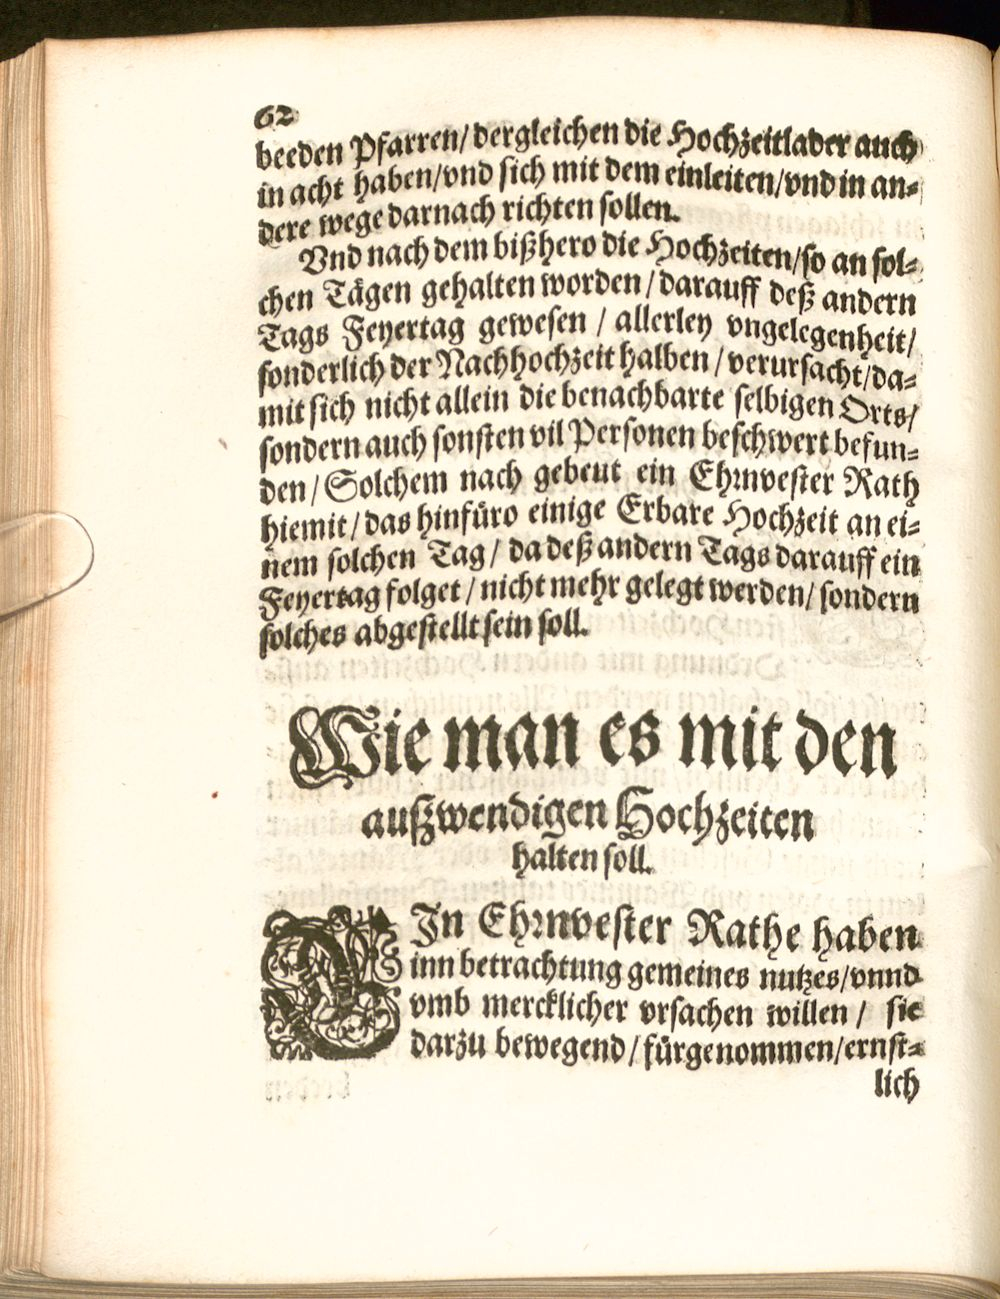 62
beeden Pfarren/ dergleichen die Hochzeitlader auch
in acht haben/vnd sich mit dem einleiten/vnd in an-
dere wege darnach richten sollen.
Vnd nach dem bißhero die Hochzeiten/so an sol-
chen Tägen gehalten worden/darauff deß andern
Tags Feyertag gewesen / allerley vngelegenheit/
sonderlich der Nachhochzeit halben / verursacht/da-
mit sich nicht allein die benachbarte selbigen Orts/
sondern auch sonsten vil Personen beschwert befun-
den/Solchem nach gebeut ein Ehrnvester Rath
hiemit/das hinfüro einige Erbare Hochzeit an ei-
nem solchen Tag/ da deß andern Tags darauff ein
Feyertag folget / nicht mehr gelegt werden/ sondern
solches abgestellt sein soll.
Wie man es mit den
außwendigen Hochzeiten
halten soll.
EIn Ehrnvester Rathe haben
inn betrachtung gemeines nutzes/vnnd
vmb mercklicher vrsachen willen / sie
darzu bewegend/fürgenommen/ernst-
lich